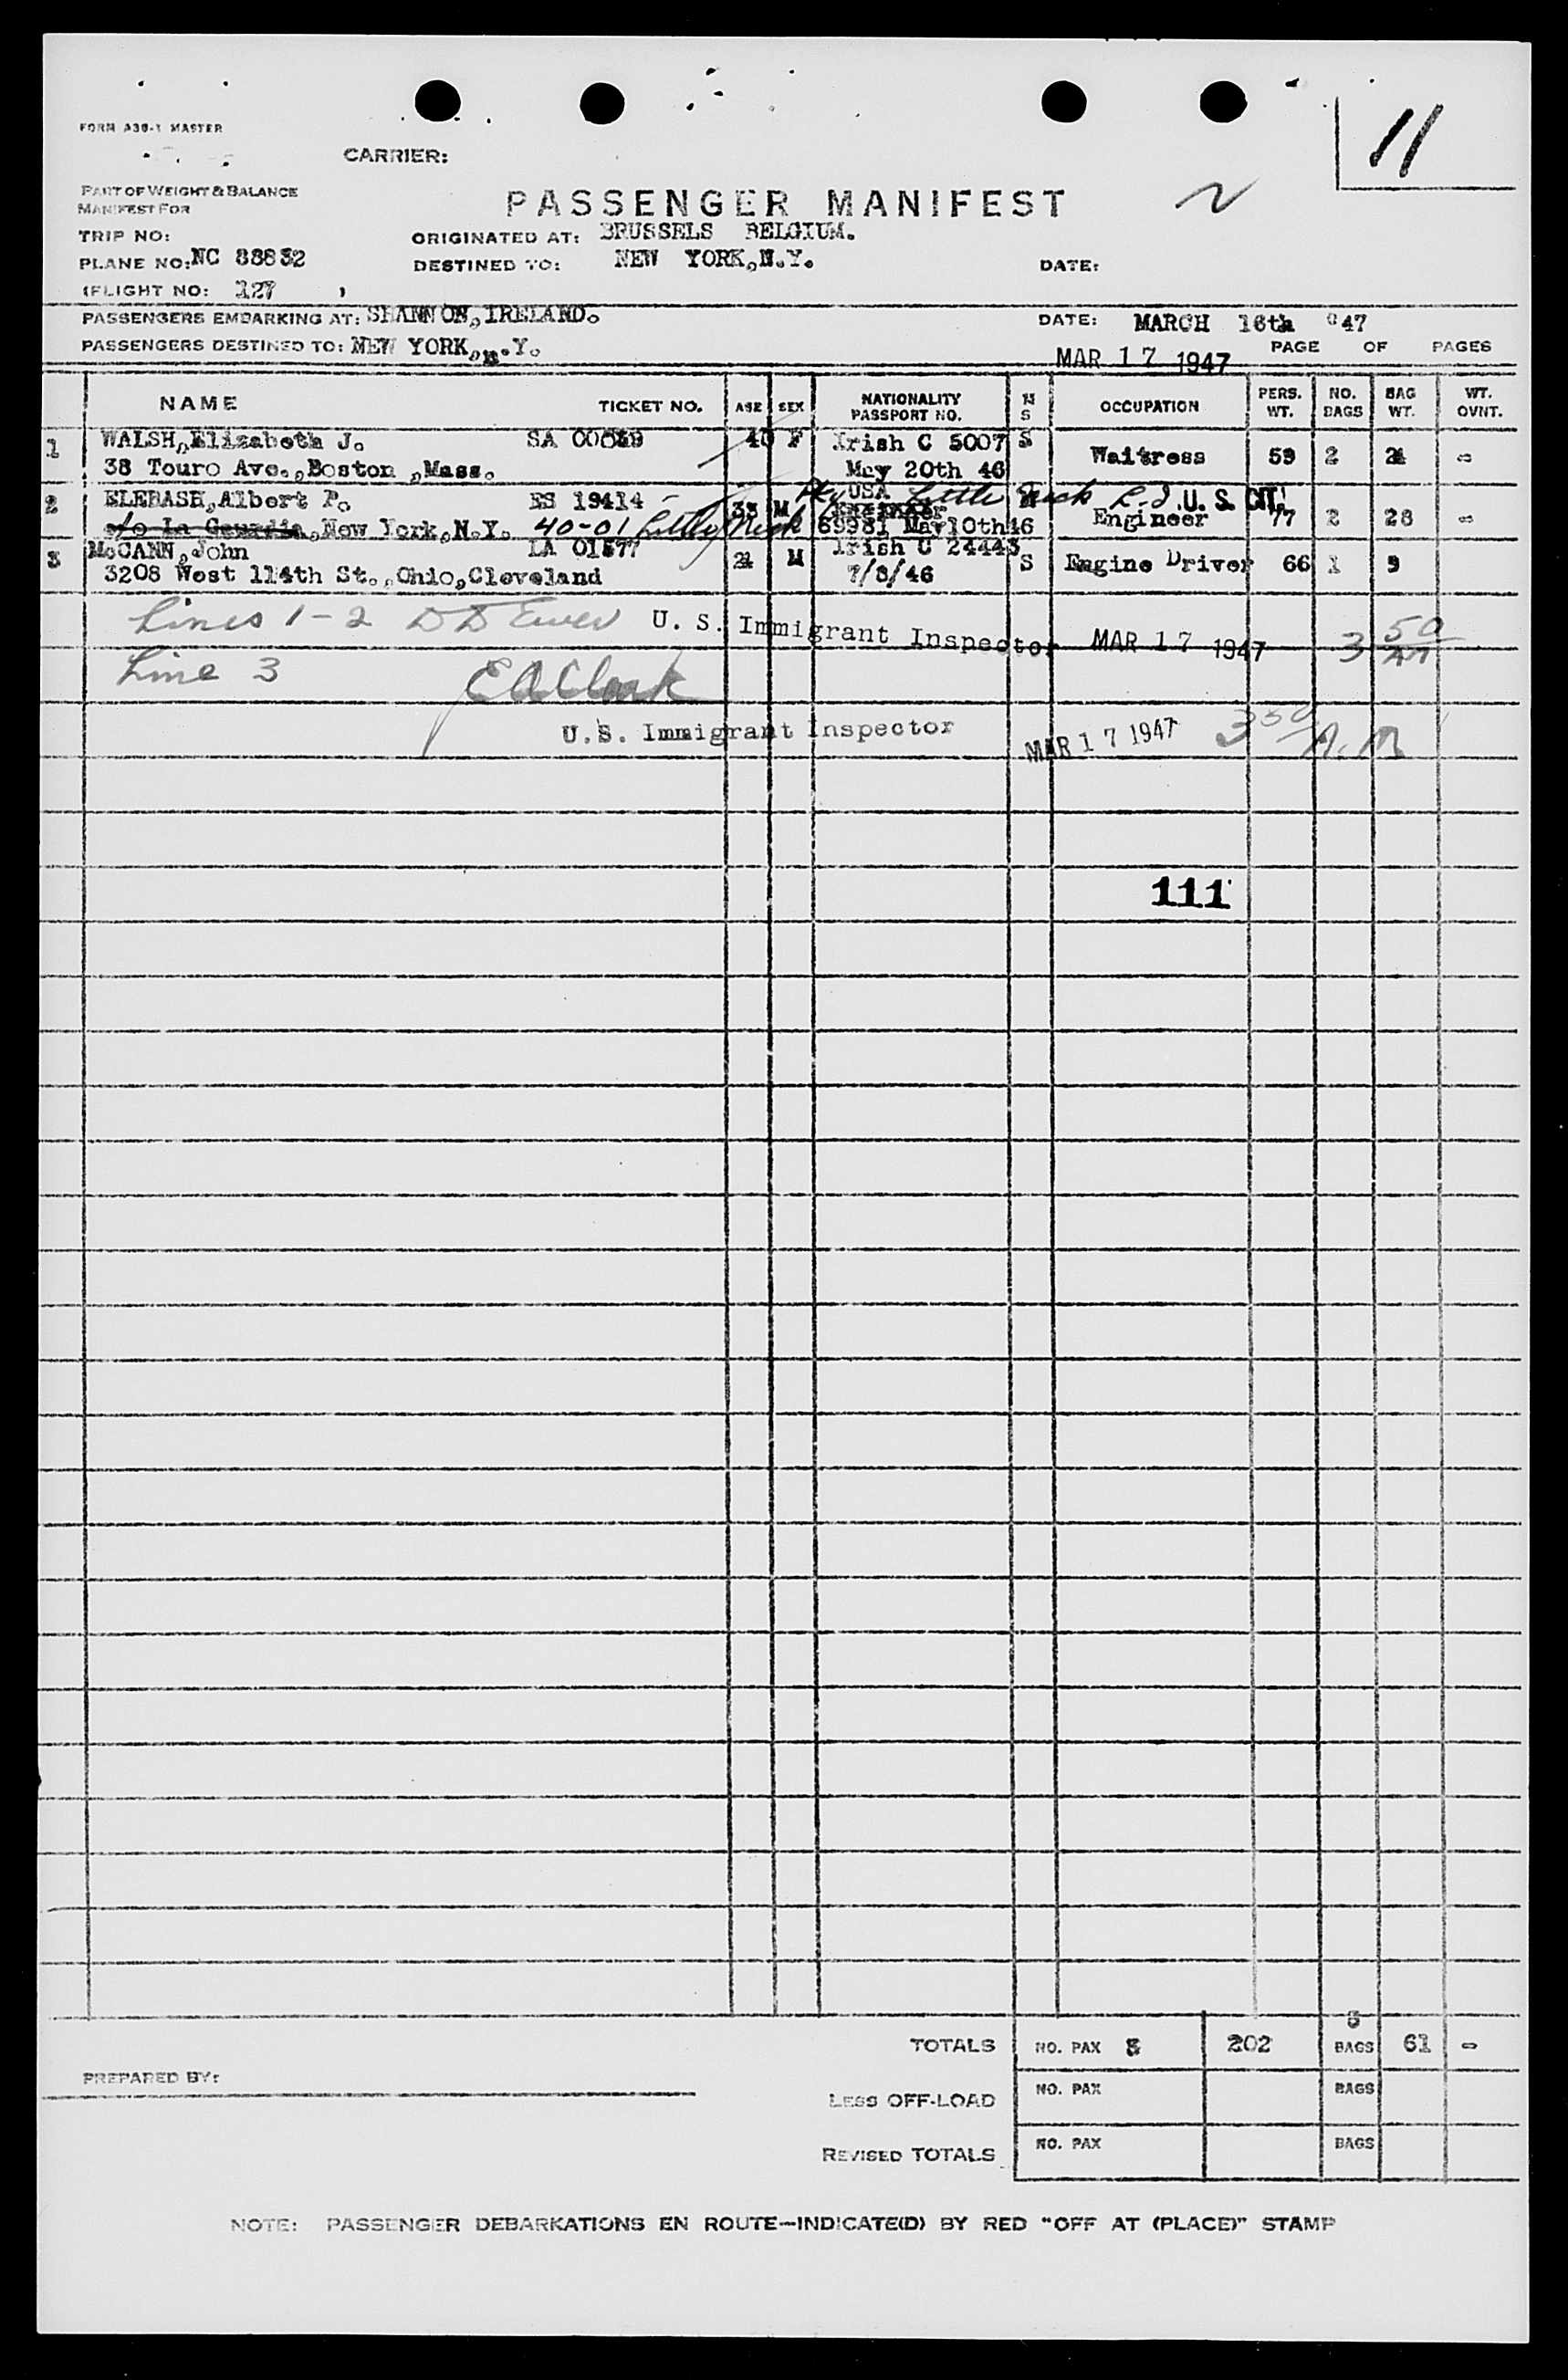 11
FORM A30-1 MASTER
CARRIER:
PART OF WEIGHT & BALANCE
MANIFEST FOR
PASSENGER MANIFEST
TRIP NO:
ORIGINATED AT: BRUSSELS BELGIUM.
PLANE NO: NC 88832
DESTINED TO: NEW YORK,N.Y.
DATE:
(FLIGHT NO: 127 )
PASSENGERS EMBARKING AT: SHANNON,IRELAND.
DATE: MARCH 16th '47
PASSENGERS DESTINED TO: NEW YORK,N.Y.
MAR 17 1947
PAGE OF PAGES
NAME TICKET NO. AGE SEX NATIONALITY PASSPORT NO. M S OCCUPATION PERS. WT. NO. BAGS BAG WT. WT. OVNT.
1 WALSH,Elizabeth J. SA 40 F Irish C 5007 S Waitress 59 2 24 -
38 Touro Ave.,Boston ,Mass. May 20th 46
2 ELEBASH,Albert P. ES 19414 33 M USA Engineer 77 2 28 -
c/o La Guardia,New York,N.Y. 40-01 Little Neck Pky Little Neck L.I. 69981 May10th46 U. S. CIT.
3 McCANN,John LA 24 M Irish C 24443 S Engine Driver 66 1 9
3208 West 114th St.,Ohio,Cleveland 7/8/46
Lines 1-2 U. S. Immigrant Inspector MAR 17 1947 3 50 AM
Line 3 E A Clark
U.S. Immigrant Inspector MAR 17 1947 3 50 A.M
111
TOTALS NO. PAX 3 202 5 BAGS 61 -
PREPARED BY:
LESS OFF-LOAD NO. PAX BAGS
REVISED TOTALS NO. PAX BAGS
NOTE: PASSENGER DEBARKATIONS EN ROUTE—INDICATE(D) BY RED "OFF AT (PLACE)" STAMP